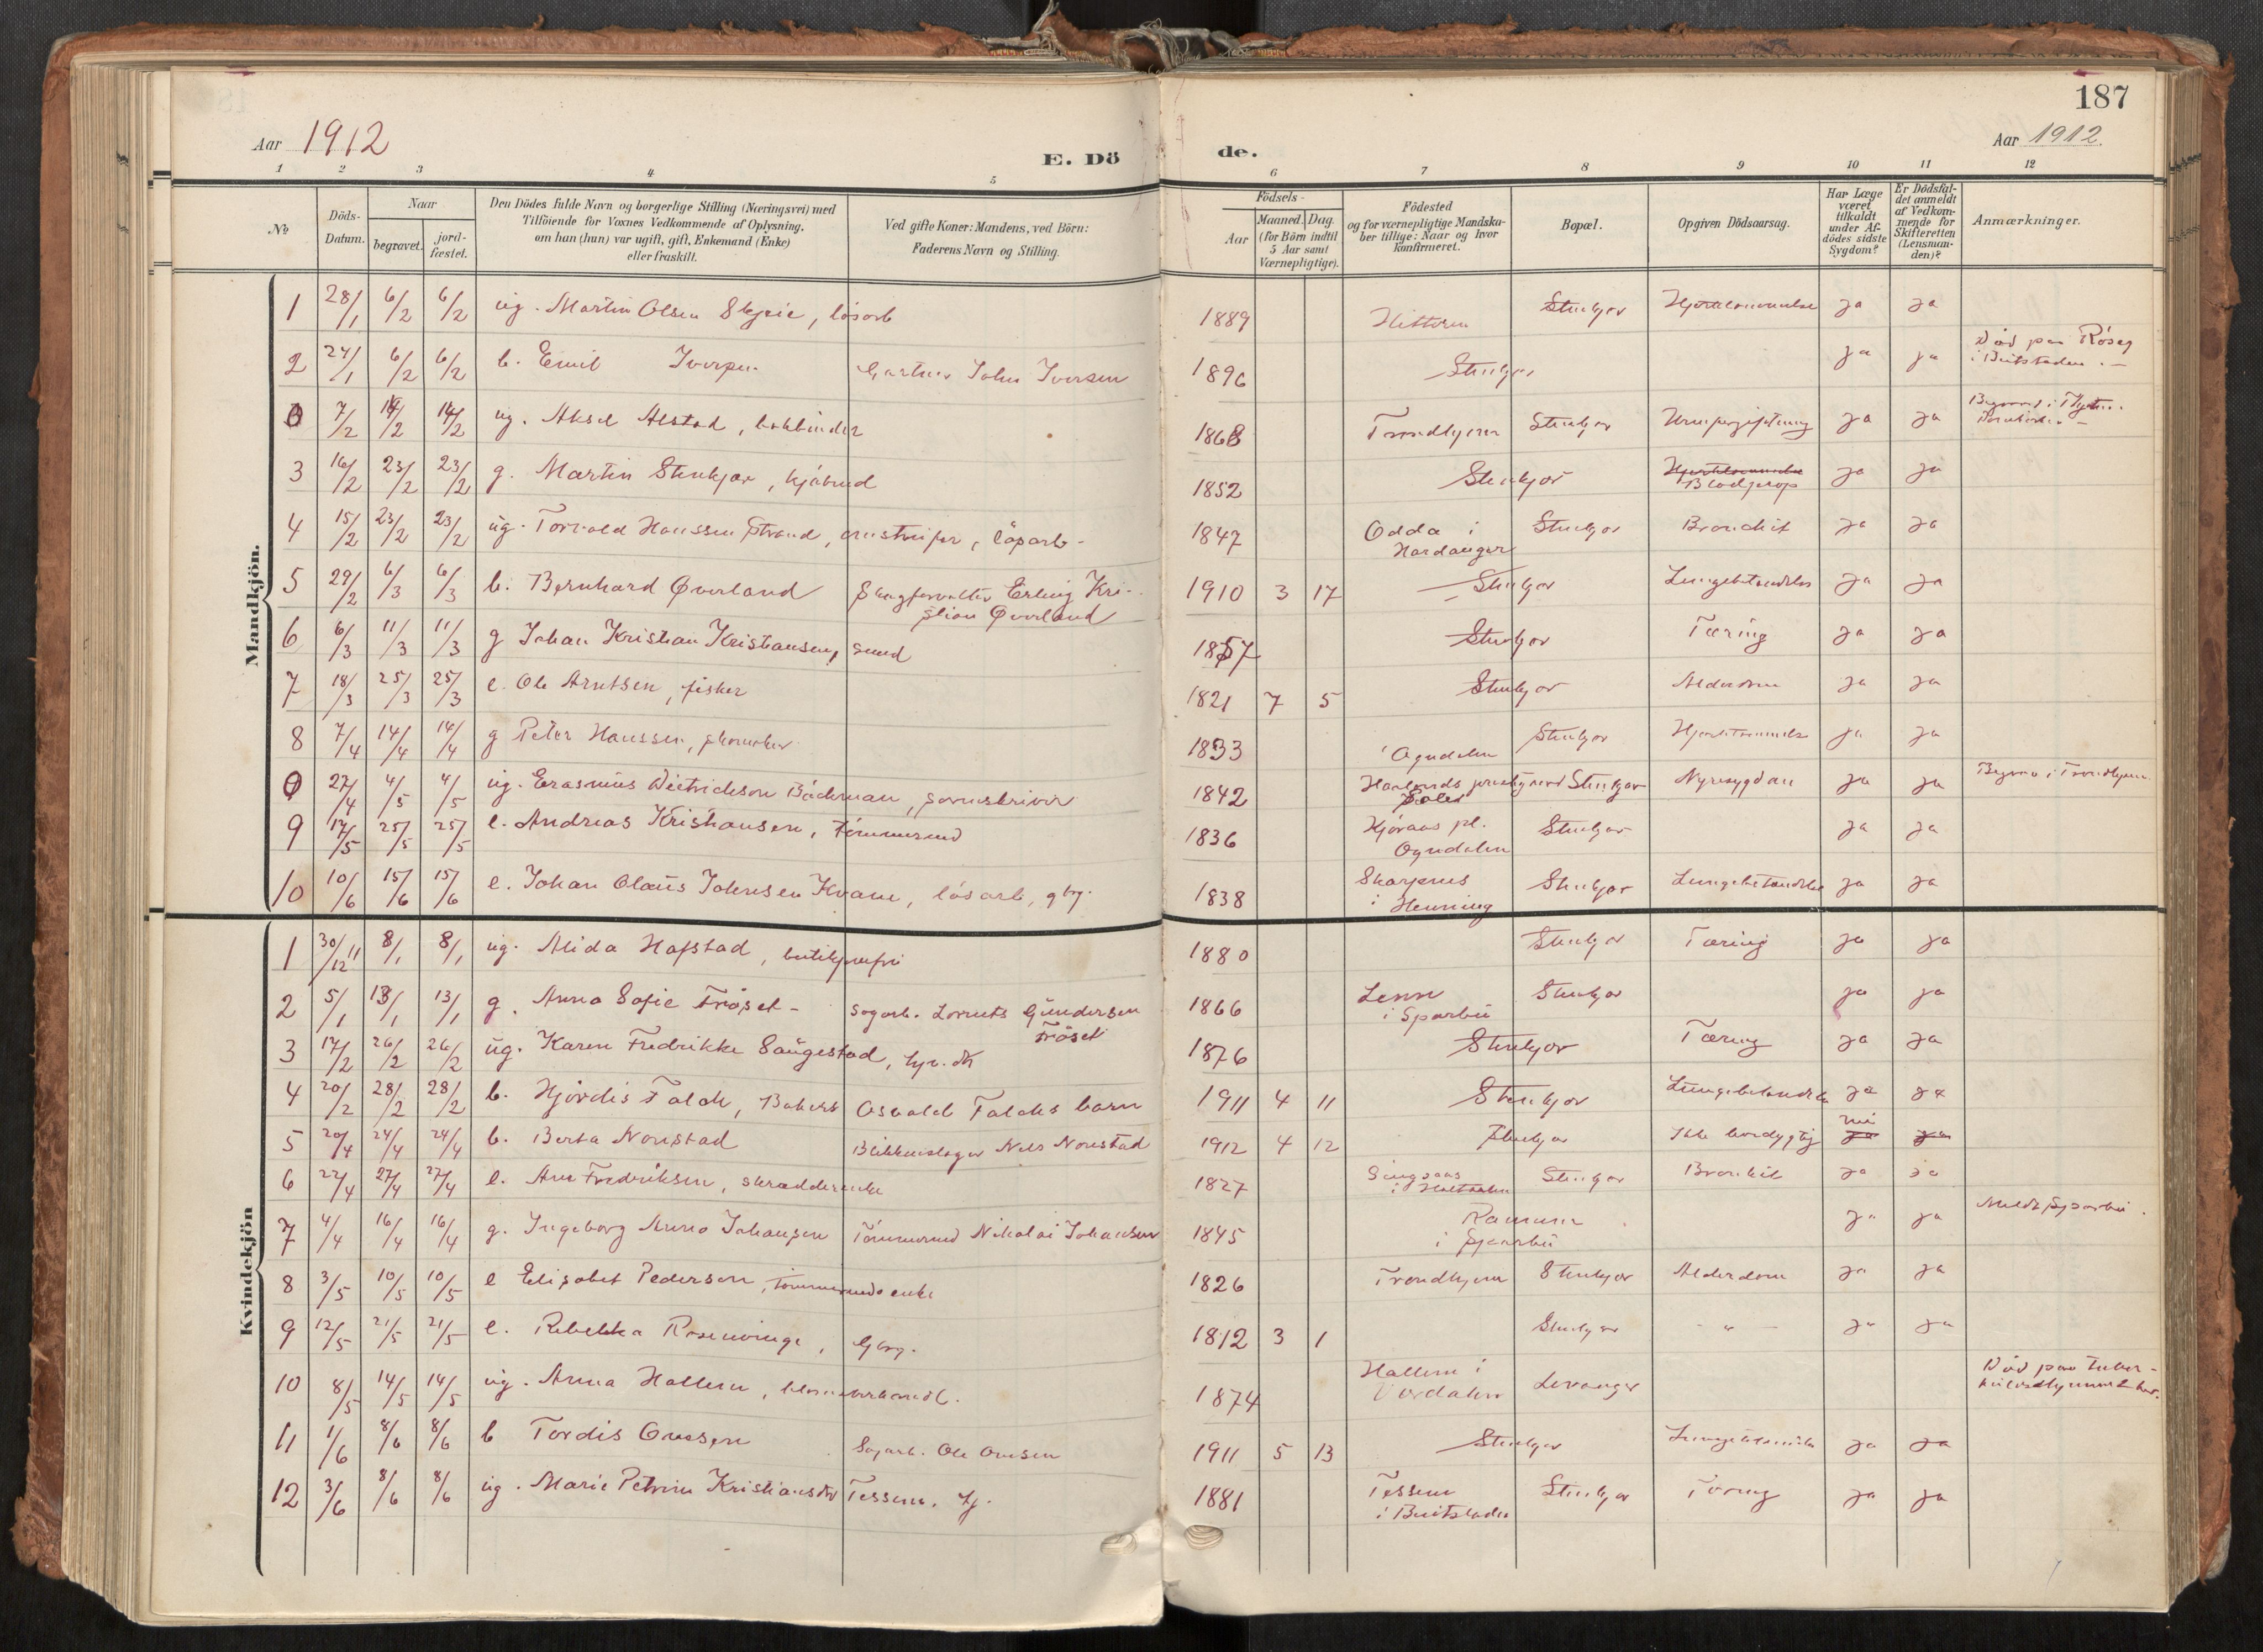 187
Aar 1912
E. Dö
de.
Aar 1912.
1 2 3 4 5 6 7 8 9 10 11 12
№
Döds-Datum.
Naar
begravet.
jord-fæstet.
Den Dödes fulde Navn og borgerlige Stilling (Næringsvei) med
Tilföiende for Voxnes Vedkommende af Oplysning,
om han (hun) var ugift, gift, Enkemand (Enke)
eller fraskilt.
Ved gifte Koner: Mandens, ved Börn:
Faderens Navn og Stilling.
Födsels-
Aar
Maaned. Dag.
(for Börn indtil
5 Aar samt
Værnepligtige).
Födested
og for værnepligtige Mandska-
ber tillige: Naar og hvor
konfirmeret.
Bopæl.
Opgiven Dödsaarsag.
Har Læge
været
tilkaldt
under Af-
dödes sidste
Sygdom?
Er Dödsfal-
det anmeldt
af Vedkom-
mende for
Skifteretten
(Lensman-
den)?
Anmærkninger.
Mandkjön.
1 28/1 6/2 6/2 ug. Martin Olsen Skjeie, lösarb 1889 Hitteren Stenkjør Hjertelammelse ja ja
2 24/1 6/2 6/2 b. Emil Iversen Gartner John Iversen 1896 Stenkjør ja ja Död paa
i Beitstaden.—
0 7/2 14/2 14/2 ug. Aksel Alstad, bokbinder 1868 Trondhjem Stenkjør Urinforgiftning ja ja
3 16/2 23/2 23/2 g. Martin Stenkjær, kjöbmd 1852 Stenkjør Hjertelammelse ja ja
Blodprop
4 15/2 23/2 23/2 ug. Torvald Hanssen Strand, löparb- 1847 Odda i Stenkjør Bronchit ja ja
Hardanger
5 29/2 6/3 6/3 b. Bernhard Øverland Skogforvalter Erling Kri- 1910 3 17 Stenkjør Lungebetændelse ja ja
stian Øverland
6 6/3 11/3 11/3 g Johan Kristian Kristiansen, smed 1857 Stenkjør Tæring ja ja
7 18/3 25/3 25/3 e. Ole Arntsen, fisker 1821 7 5 Stenkjør Alderdom ja ja
8 7/4 14/4 14/4 g Peter Hanssen, skomaker 1833 Ogndalen Stenkjør Hjertelammelse ja ja
0 27/4 4/5 4/5 ug. Erasmus Dietrichson Bachman, sorenskriver 1842 Stenkjør Nyresygdom ja ja Begrav. i Trondhjem
9 17/5 25/5 25/5 e. Andreas Kristiansen, tömmermd 1836 Kjóraas pl. Stenkjør ja ja
Ogndalen
10 10/6 15/6 15/6 e. Johan Olaus Johnsen Kvam, lösarb, gbg. 1838 Skarpnes Stenkjør Lungebetændelse ja ja
i Henning
Kvindekjön
1 30/12 11 8/1 8/1 ug. Alida Hafstad, butikjomfru 1880 Stenkjør Tæring ja ja
2 5/1 13/1 13/1 g. Anna Sofie Fröset- Sagarb. Lornts Gundersen 1866 Lenn Stenkjør ja ja
Fröset i Sparbu
3 17/2 26/2 26/2 ug. Karen Fredrikke Saugestad, 1876 Stenkjør Tæring ja ja
4 20/2 28/2 28/2 b. Hjördis Falch, Bakers Osvald Falchs barn 1911 4 11 Stenkjør Lungebetændelse ja ja
5 20/4 24/4 24/4 b. Berta Nonstad Blikkenslager Nils Nonstad 1912 4 12 Stenkjør Ikke levedygtig nei ja ja
6 22/4 27/4 27/4 e. Ane Fredriksen, skrædderenke 1827 Singsaas Stenkjør Bronkit ja ja
i Holtaalen
7 4/4 16/4 16/4 g. Ingeborg Anna Johansen Tömmermd Nikolai Johansen 1845 Ramnem ja ja
i Sparbu
8 3/5 10/5 10/5 e Elisabet Pedersen, tömmermds enke 1826 Trondhjem Stenkjør Alderdom ja ja
9 12/5 21/5 21/5 e. Rebekka Rosenvinge, gbrg. 1812 3 1 Stenkjør - " - ja ja
10 8/5 14/5 14/5 ug. Anna Hallem, 1874 Hallem i Levanger Död paa tuber-
Værdalen
11 1/6 8/6 8/6 b Tordis Onssen Sagarb. Ole Onsen 1911 5 13 Stenkjør Lungebetændelse ja ja
12 3/6 8/6 8/6 ug. Marie Petrine Kristiansdtr Tessem. tj. 1881 Tessem Stenkjør Tæring ja ja
i Beitstaden